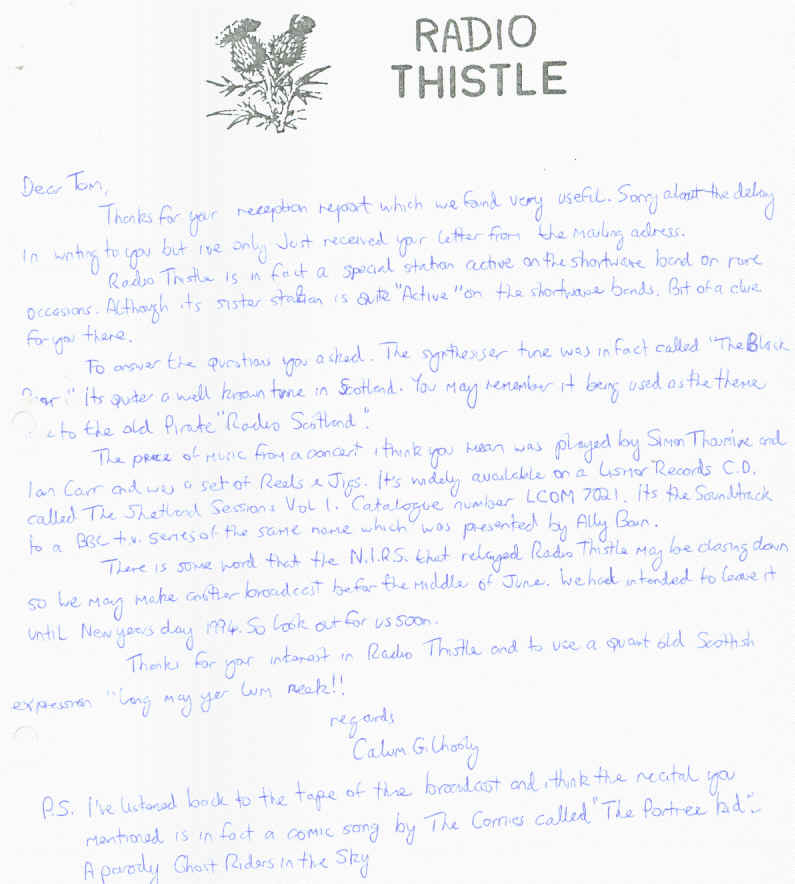 RADIO
THISTLE
Dear Tom,
Thanks for your reception report which we found very useful. Sorry about the delay
In writing to you but ive only Just received your letter from the mailing adress.
Radio Thistle is in fact a special station active on the shortwave band on rare
occasions. Although its sister station is quite "Active" on the shortwave bands. Bit of a clue
for you there.
To answer the questions you asked. The synthesiser tune was in fact called "The Black
Its quite a well known tune in Scotland. You May remember it being used as the theme
to the old Pirate "Radio Scotland".
The piece of Music from a concert i think you Mean was played by Simon Thoumire and
Ian Carr and was a set of Reels & Jigs. It's widely available on a Lismor Records C.D.
called The Shetland Sessions Vol 1. Catalogue number LCOM 7021. Its the Soundtrack
to a BBC t.v. series of the same name which was presented by Ally Bain.
There is some word that the N.I.R.S. that relayed Radio Thistle May be closing down
so we May Make another broadcast befor the Middle of June. We had intended to leave it
until New years day 1994. So look out for us soon.
Thanks for your interest in Radio Thistle and to use a quant old Scottish
expression "Long may yer lum reek!!
regards
Calum G.
P.S. I've listened back to the tape of the broadcast and i think the recital you
mentioned is in fact a comic song by The Corries called "The Portree kid".
A parody Ghost Riders in the Sky